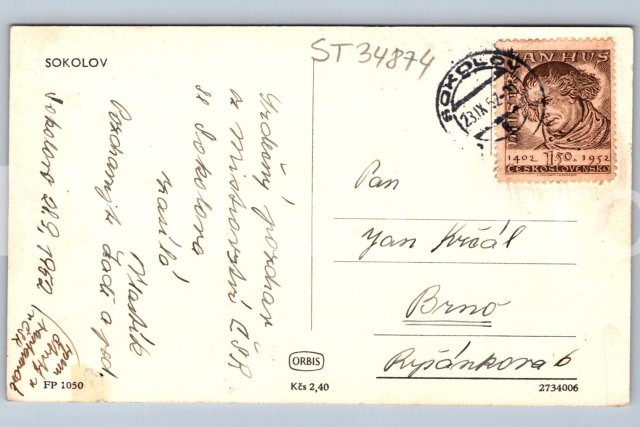 SOKOLOV
ST 34874
SOKOLOV
23.IX.52
JAN HUS
1402 1.50 1952
ČESKOSLOVENSKO
Srdečný pozdrav
z Mistrovství ČSR
ze Sokolova
zasílá
Vlastík
Pozdravujte
Sokolov 21.9.1952
Pan
Jan Krčál
Brno
Rypánkova 6
ORBIS
Kčs 2,40
FP 1050
2734006